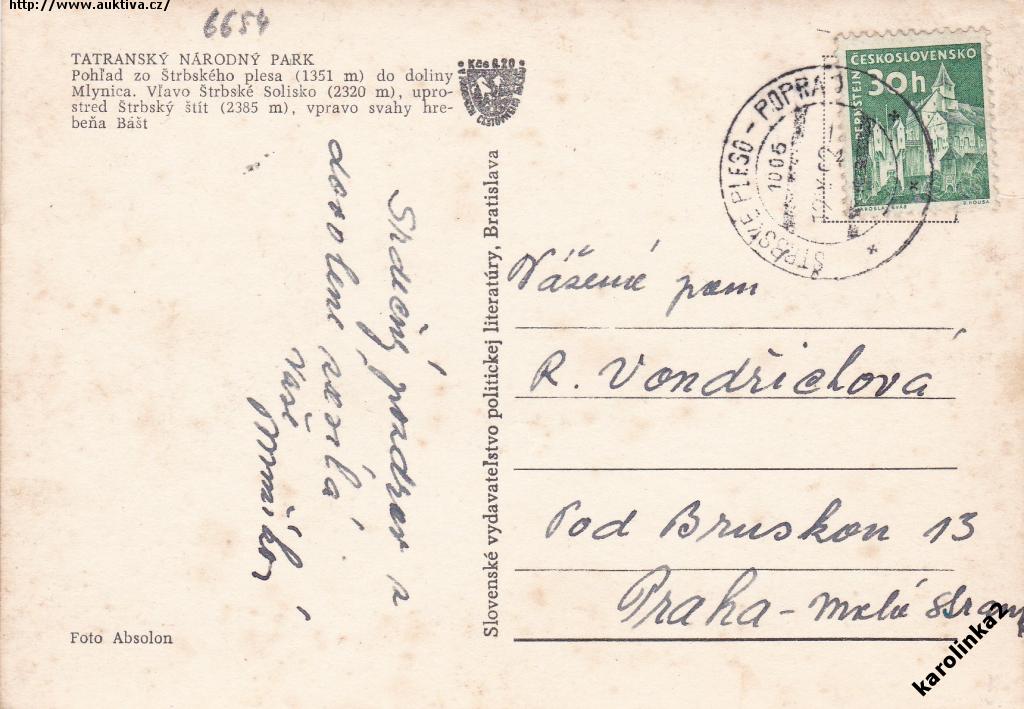 http://www.auktiva.cz/
6654
TATRANSKÝ NÁRODNÝ PARK
Pohľad zo Štrbského plesa (1351 m) do doliny
Mlynica. Vľavo Štrbské Solisko (2320 m), upro-
stred Štrbský štít (2385 m), vpravo svahy hre-
beňa Bášt
Kčs 0.20
Srdečný pozdrav z
dovolené posílá
Vaše
Slovenské vydavateľstvo politickej literatúry, Bratislava
ŠTRBSKÉ PLESO - POPRAD
ČESKOSLOVENSKO
30h
PERNŠTEJN
JAROSLAV ŠVÁB
J. HOUSA
Vážená paní
R. Vondřichová
Pod Bruskou 13
Praha - Malá Strana
Foto Absolon
karolinka2